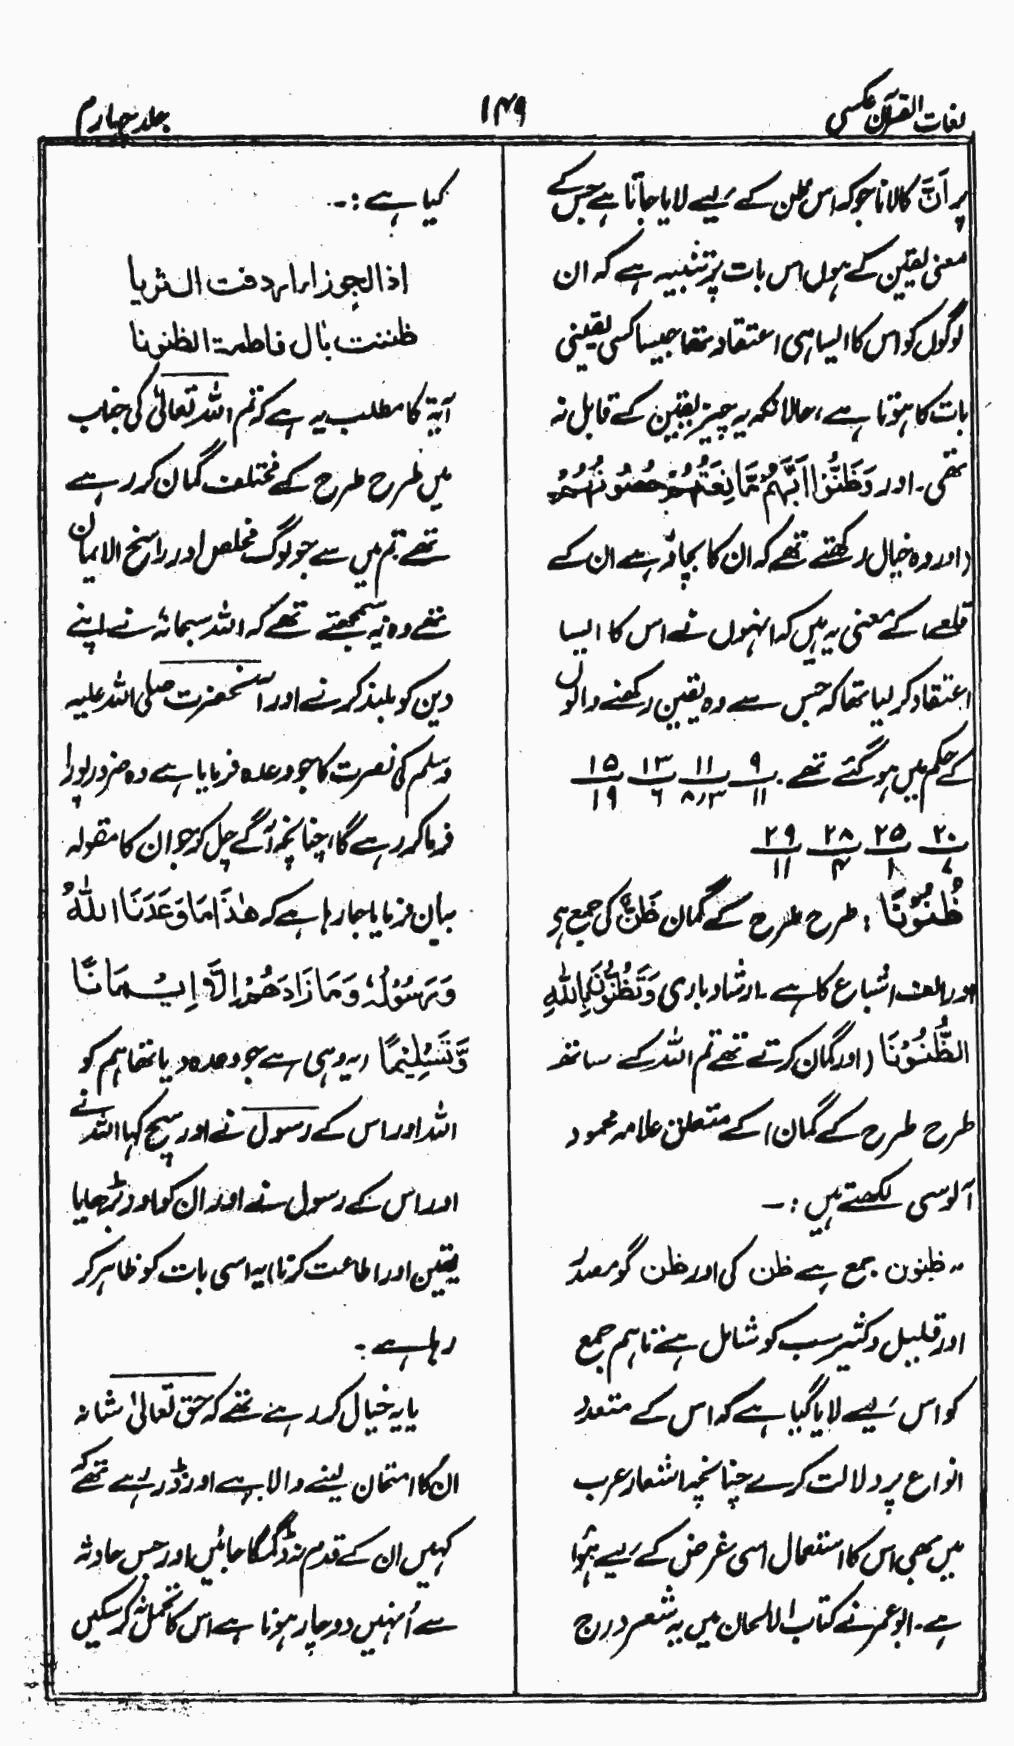 لغات القرآن عکسی
۱۴۹
جلد چہارم
پر اَنَّ کا لانا جو کہ اس ظن کے لیے لایا جاتا ہے جس کے
معنی یقین کے ہوں اس بات پر تنبیہ ہے کہ ان
لوگوں کو اس کا ایسا ہی اعتقاد تھا جیسا کسی یقینی
بات کا ہوتا ہے، حالانکہ یہ چیز یقین کے قابل نہ
تھی۔ اور وَظَنُّوْا اَنَّهُمْ مَّانِعَتُهُمْ حُصُوْنُهُمْ
(اور وہ خیال رکھتے تھے کہ ان کا بچاؤ ہے ان کے
قلعے) کے معنی یہ ہیں کہ انہوں نے اس کا ایسا
اعتقاد کر لیا تھا کہ جس سے وہ یقین رکھنے والوں
کے حکم میں ہو گئے تھے۔ ۹/۱۱ ۱۱/۸،۳ ۱۳/۶ ۱۵/۱۹
۲۰/۷ ۲۵/۱ ۲۸/۴ ۲۹/۱۱
ظُنُوْنًا: طرح طرح کے گمان ظَنٌّ کی جمع ہے
اور الف اشباع کا ہے۔ ارشاد باری وَتَظُنُّوْنَ بِاللّٰهِ
الظُّنُوْنَا (اور گمان کرتے تھے تم اللہ کے ساتھ
طرح طرح کے گمان) کے متعلق علامہ محمود
آلوسی لکھتے ہیں :۔
"ظنون جمع ہے ظن کی اور ظن گو مصدر
اور قلیل و کثیر سب کو شامل ہے تاہم جمع
کو اس لیے لایا گیا ہے کہ اس کے متعدد
انواع پر دلالت کرے چنانچہ اشعار عرب
میں بھی اس کا استعمال اسی غرض کے لیے ہوا
ہے۔ ابو عمر نے کتاب الالحان میں یہ شعر درج
کیا ہے :۔
اذا الجوزاء اردفت الثریا
ظننت بال فاطمة الظنونا
آیۃ کا مطلب یہ ہے کہ تم اللہ تعالیٰ کی جناب
میں طرح طرح کے مختلف گمان کر رہے
تھے تم میں سے جو لوگ مخلص اور راسخ الایمان
تھے وہ یہ سمجھتے تھے کہ اللہ سبحانہٗ نے اپنے
دین کو بلند کرنے اور آنحضرت صلی اللہ علیہ
وسلم کی نصرت کا جو وعدہ فرمایا ہے وہ ضرور پورا
فرما کر رہے گا، چنانچہ آگے چل کر جو ان کا مقولہ
بیان فرمایا جا رہا ہے کہ هٰذَا مَا وَعَدَنَا اللّٰهُ
وَرَسُوْلُهٗ وَمَا زَادَهُمْ اِلَّا اِيْمَانًا
وَّتَسْلِيْمًا (یہ وہی ہے جو وعدہ دیا تھا ہم کو
اللہ اور اس کے رسول نے اور سچ کہا اللہ نے
اور اس کے رسول نے اور ان کو اور بڑھایا
یقین اور اطاعت کرنا) یہ اسی بات کو ظاہر کر
رہا ہے۔
یا یہ خیال کر رہے تھے کہ حق تعالیٰ شانہ
ان کا امتحان لینے والا ہے اور ڈر رہے تھے کہ
کہیں ان کے قدم نہ ڈگمگا جائیں اور جس حادثہ
سے اُنہیں دو چار ہونا ہے اس کا تحمل نہ کر سکیں